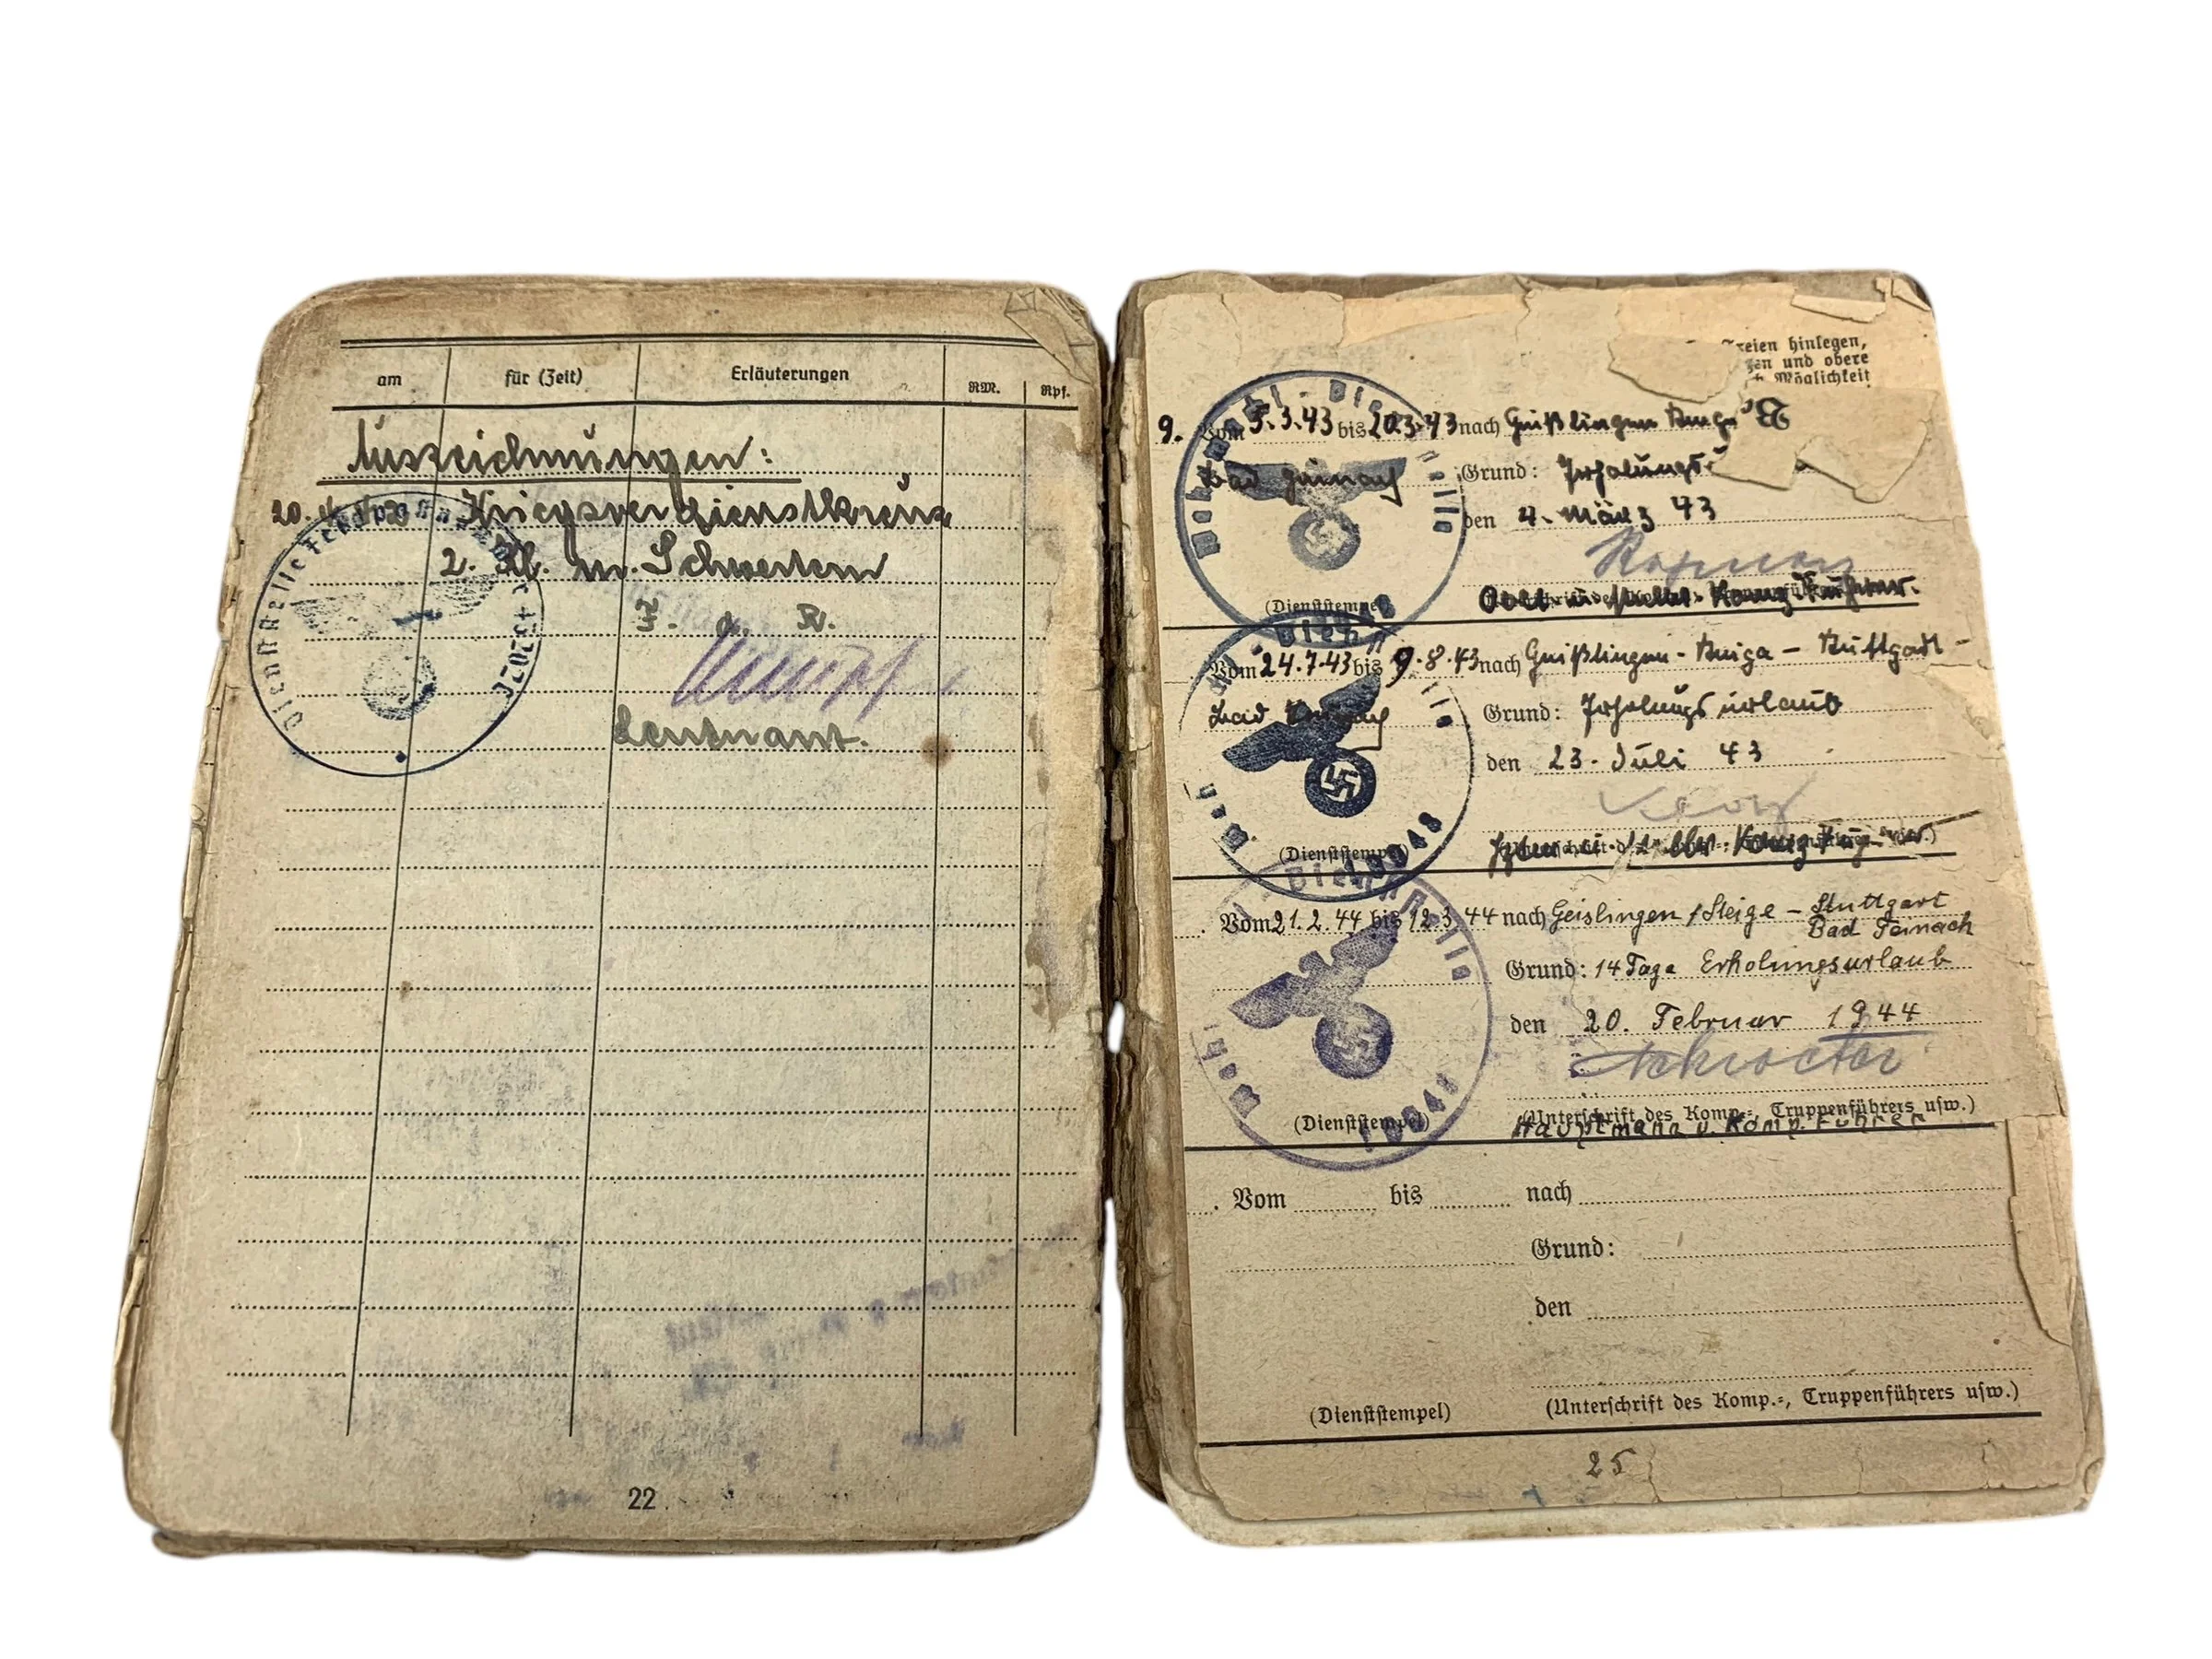 am für (Zeit) Erläuterungen RM. Rpf.
Auszeichnungen:
20. Kriegsverdienstkreuz
2. Kl. m. Schwertern
d. R.
Leutnant.
Dienststelle Feldpostnummer
22
Freien hinlegen,
und obere
Möglichkeit
9. Vom 5.3.43 bis 20.3.43 nach Geißlingen Steige
Bad Teinach Grund:
den 4. März 43
(Dienststempel)
Vom 24.7.43 bis 9.8.43 nach Geißlingen-Steige - Stuttgart -
Bad Teinach Grund: Erholungsurlaub
den 23. Juli 43
(Dienststempel)
Vom 21.2.44 bis 12.3.44 nach Geislingen/Steige - Stuttgart
Bad Teinach
Grund: 14 Tage Erholungsurlaub
den 20. Februar 1944
(Dienststempel) (Unterschrift des Komp.-, Truppenführers usw.)
Hauptmann u. Komp. Führer
Vom bis nach
Grund:
den
(Dienststempel) (Unterschrift des Komp.-, Truppenführers usw.)
25